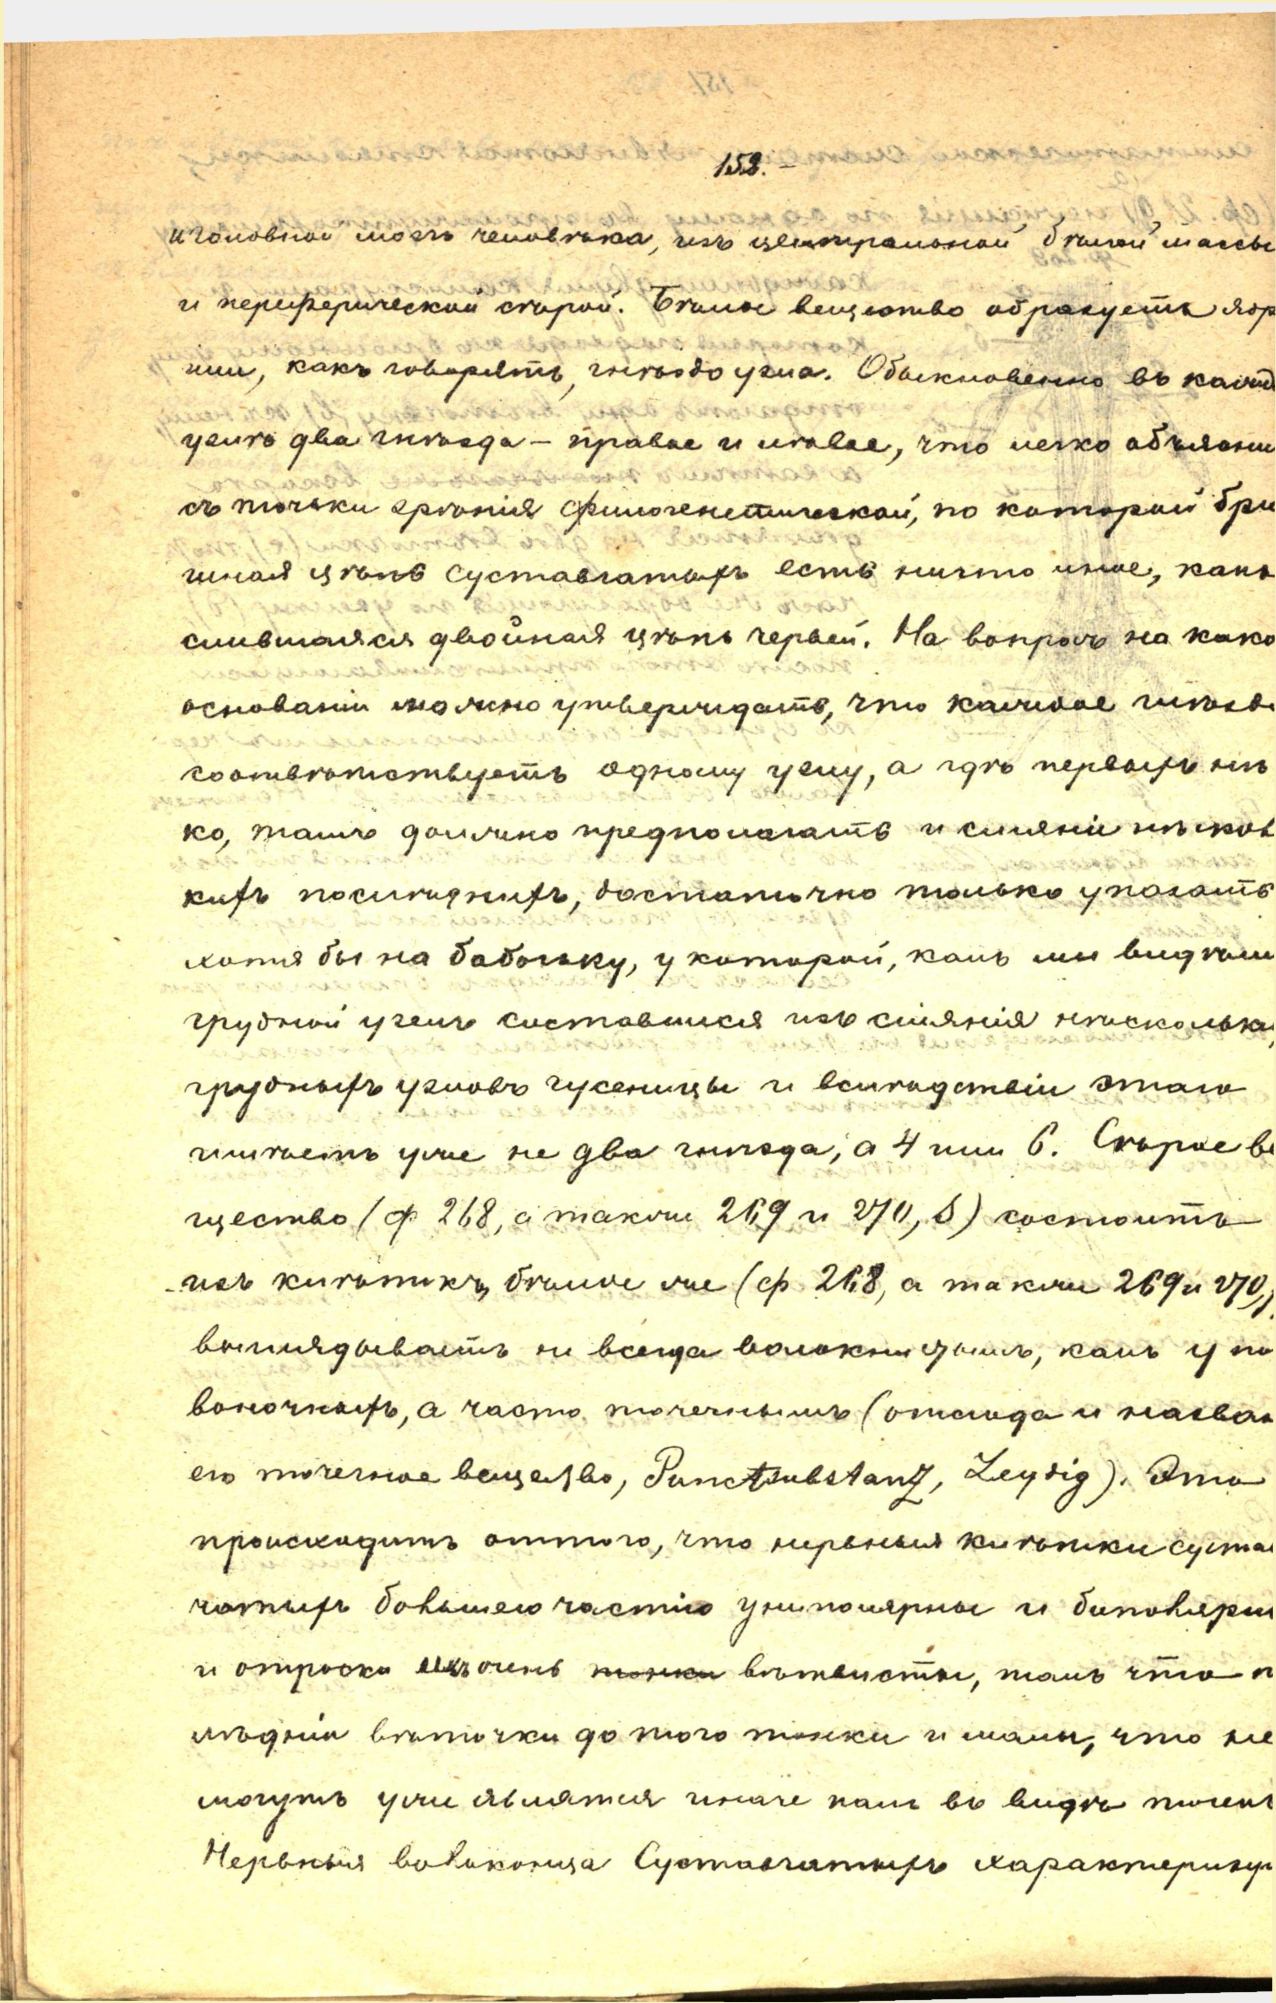 152.
и головной мозгъ человѣка, изъ центральной бѣлой массы
и периферической сѣрой. Бѣлое вещество образуетъ ядр
или, какъ говорятъ, гнѣздо узла. Обыкновенно въ кажд
узлѣ два гнѣзда – правое и лѣвое, что легко объясни
съ точки зрѣнія филогенетической, по которой брю
шная цѣпь суставчатыхъ есть ничто иное, какъ
слившаяся двойная цѣпь червей. На вопросъ на како
основаніи можно утверждать, что каждое гнѣздо
соотвѣтствуетъ одному узлу, а гдѣ первыхъ нѣ
ко, тамъ должно предполагать и сліяніе нѣсколь
кихъ послѣднихъ, достаточно только указать
хотя бы на бабочку, у которой, какъ мы видѣли
грудной узелъ составился изъ сліянія нѣскольки
грудныхъ узловъ гусеницы и вслѣдствіи этаго
имѣетъ уже не два гнѣзда, а 4 или 6. Сѣрое ве
щество (ф 268, а также 269 и 270, S) состоитъ
изъ клѣтокъ, бѣлое же (ф 268, а также 269 и 270,
выглядываетъ не всегда волокнистымъ, какъ у по
воночныхъ, а часто точечнымъ (отсюда и назван
его точечное вещество, Punctsubstanz, Leydig). Это
происходитъ оттого, что нервныя клѣтки суста
чатыхъ большею частію униполярные и биполярн
и отростки ихъ очень тонки вѣтвисты, такъ что п
слѣдніе вѣточки до того тонки и малы, что не
могутъ уже являтся иначе какъ въ видѣ точекъ
Нервныя волоконца Суставчатыхъ характеризу